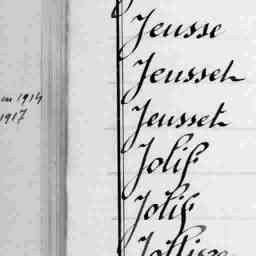 en 1914
1917
Jeusse
Jeusset
Jeusset
Jolif
Jolif